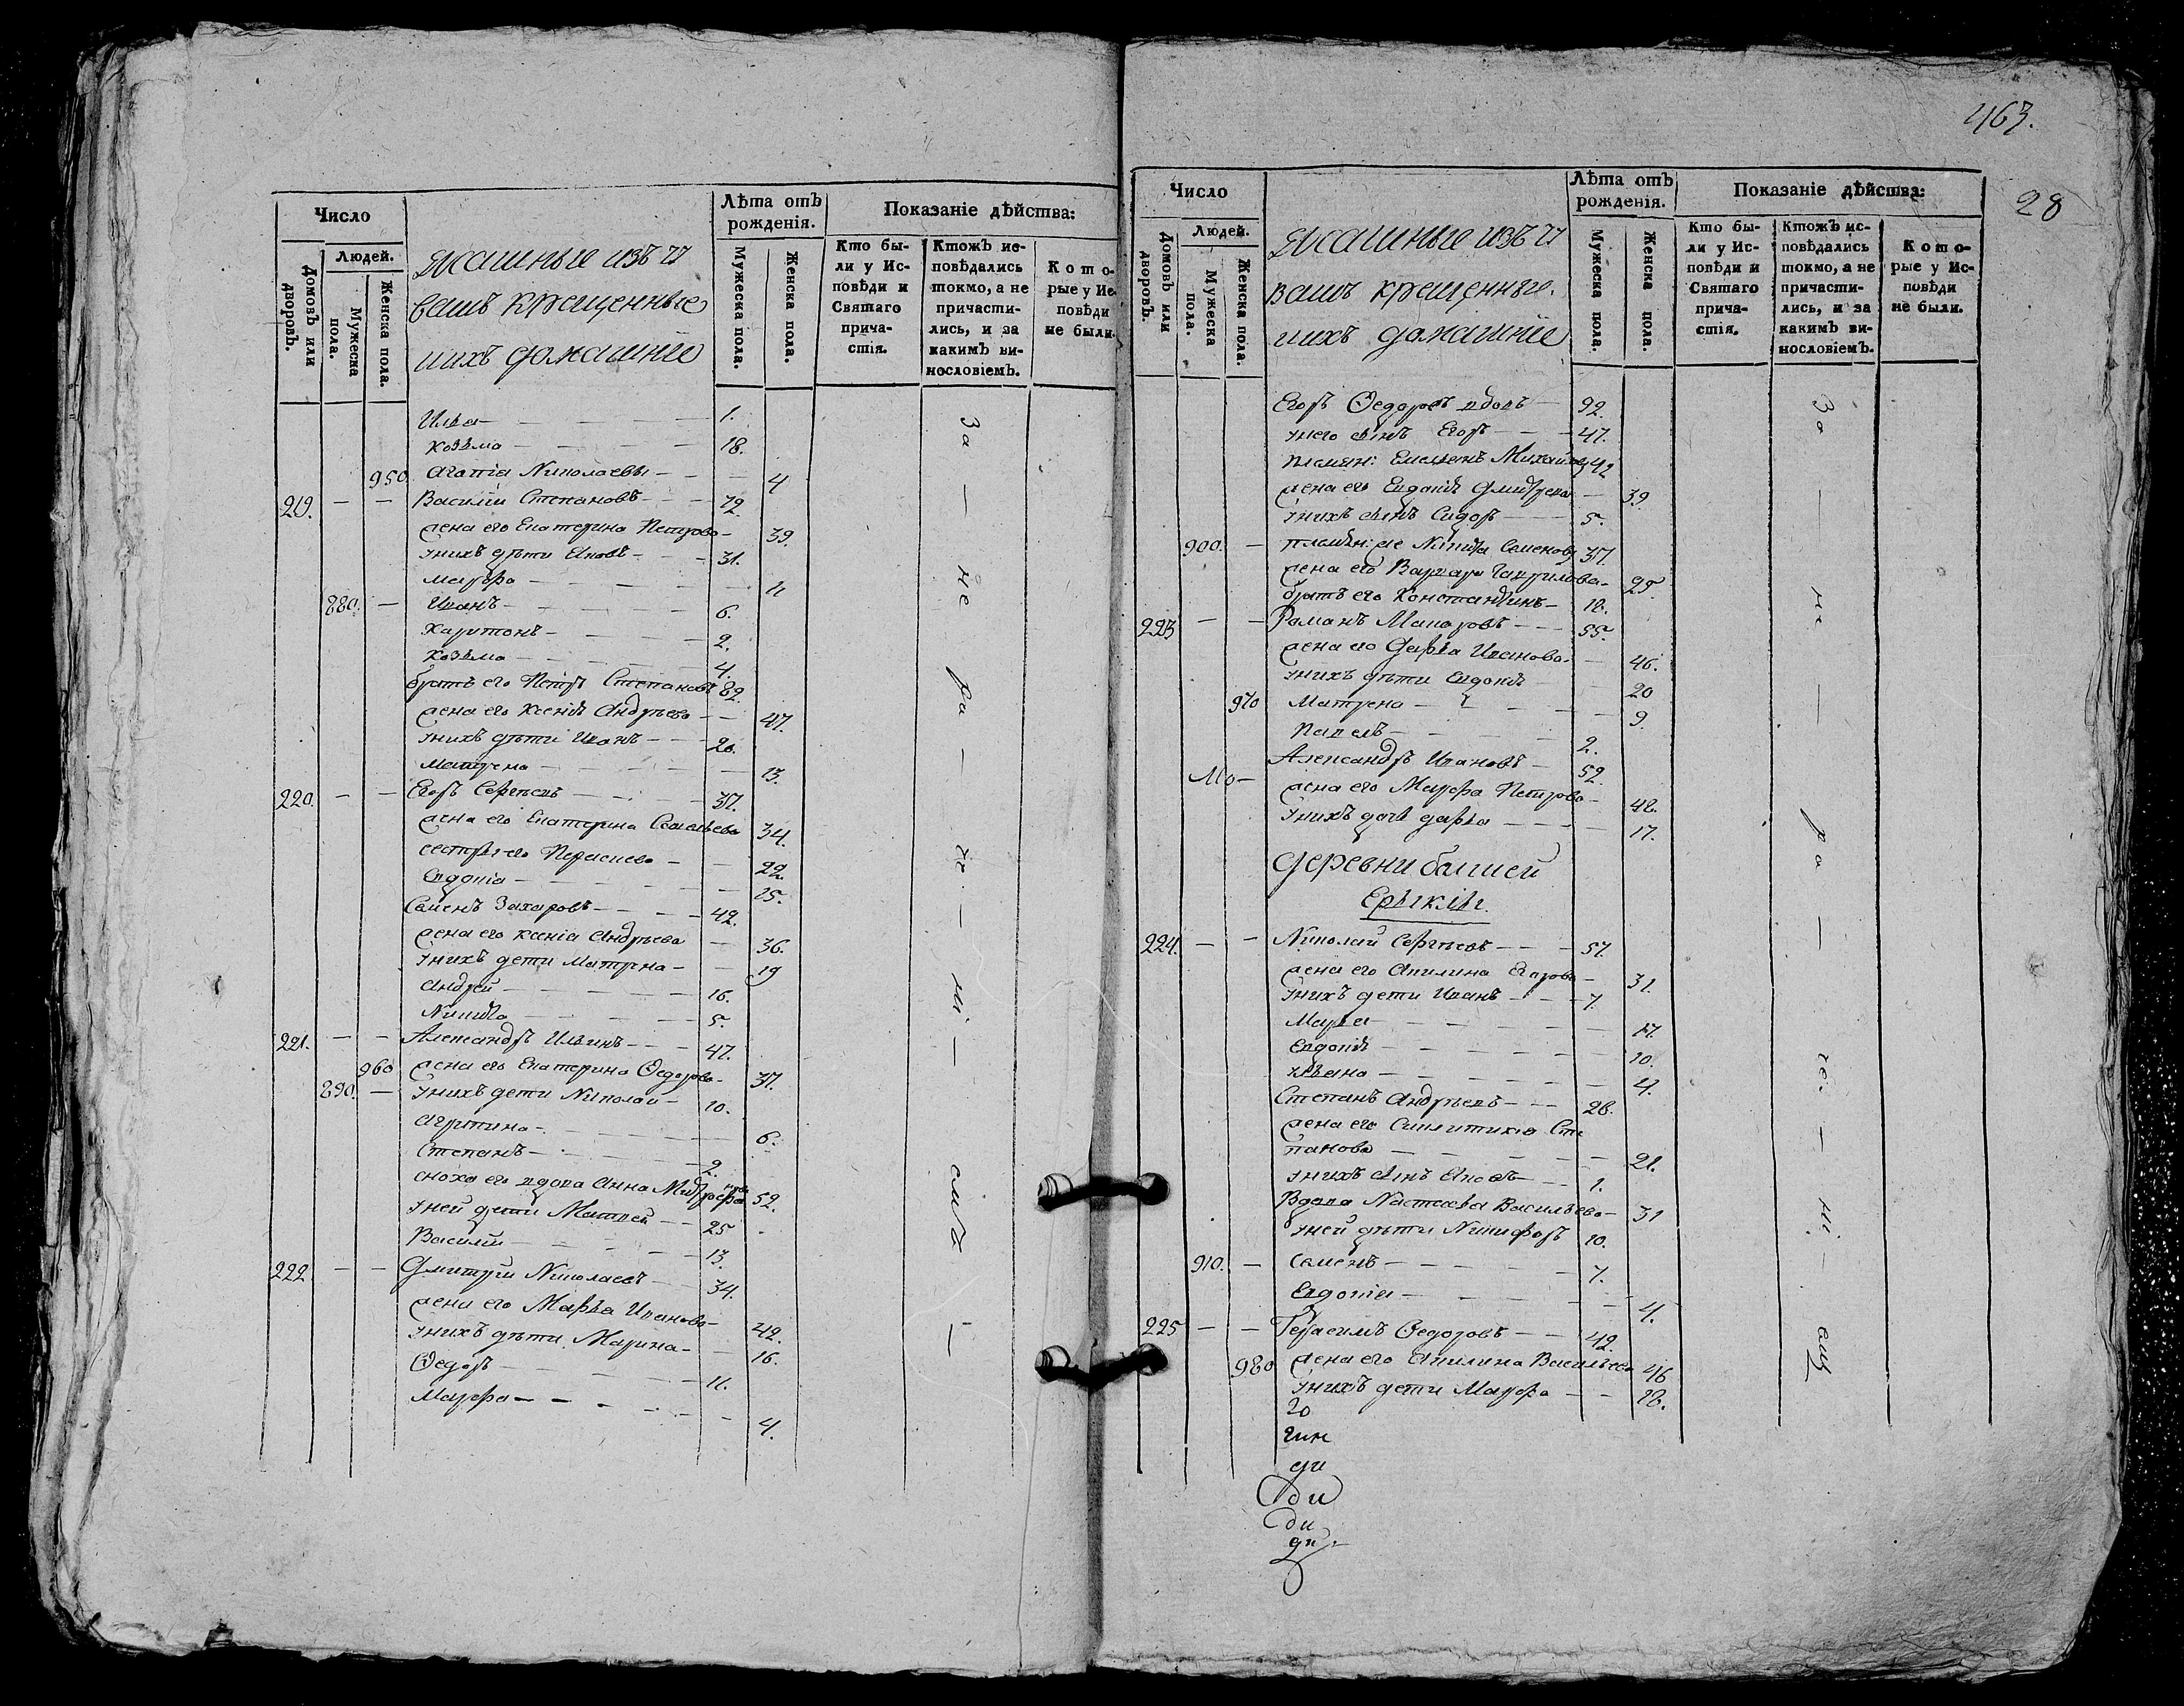 Число
Людей.
Домовъ или дворовъ.
Мужеска пола.
Женска пола.
Ясашные изъ чу
вашъ крещенные
ихъ домашніе
Лѣта отъ рожденія.
Мужеска пола.
Женска пола.
Показаніе дѣйства:
Кто бы-
ли у Ис-
повѣди и
Святаго
прича-
стія.
Ктожъ ис-
повѣдались
токмо, а не
причасти-
лись, и за
какимъ ви-
нословіемъ.
Кото-
рые у Ис-
повѣди
не были.
Илья — 1.
Козьма — 18.
950 Агапіа Николаевы — 4
219. — — Василій Степановъ — 72.
жена его Екатерина Петрова — 39.
у нихъ дѣти Яковъ — 31.
Марфа — 11
880. — Иванъ — 6.
Харитонъ — 2.
Козьма — 4.
братъ его Петръ Степановъ 82.
жена его Ксеніѧ Андрѣева — 47.
у нихъ дѣти Иванъ — 20.
Матрена — 13.
220. — — Егоръ Сергѣевъ — 37.
жена его Екатерина Савельева 34.
сестры его Парасkева — 22.
Евдокіа — 15.
Семенъ Захаровъ — 42.
жена его Ксеніа Андрѣева — 36.
у нихъ дети Матрена — 19
Андрей — 16.
Никита — 5.
221. — — Александръ Ильинъ — 47.
960 жена его Екатерина Ѳедорова — 37.
890. — у нихъ дети Николай — 10.
Агрипина — 6.
Степанъ — 2.
сноха его вдова Анна Митрофанова 52.
у ней дети Матвей — 25
Василій — 13.
222 — — Дмитрій Николаевъ — 34.
жена его Марья Иванова — 42.
у нихъ дѣти Марина — 16.
Ѳедоръ — 11.
Марфа — 4.
За — не — ра — че. — ні — емъ —
463.
28
Число
Людей.
Домовъ или дворовъ.
Мужеска пола.
Женска пола.
Ясашные изъ чу
вашъ крещенные.
ихъ домашніе
Лѣта отъ рожденія.
Мужеска пола.
Женска пола.
Показаніе дѣйства:
Кто бы-
ли у Ис-
повѣди и
Святаго
прича-
стія.
Ктожъ ис-
повѣдались
токмо, а не
причасти-
лись, и за
какимъ ви-
нословіемъ.
Кото-
рые у Ис-
повѣди
не были.
Егоръ Ѳедоровъ вдовъ — 92.
у него сынъ Егоръ — 47.
племян: Емельянъ Михайловъ 42
жена его Евдокіѧ Дмитрева — 39.
у нихъ сынъ Сидоръ — 5.
900. — племян: же Никита Семеновъ 37.
жена его Варвара Гаврилова — 25.
братъ его Константинъ — 18.
223 — — Романъ Макаровъ — 55.
жена его Дарья Иванова — 46.
у нихъ дѣти Евдокіѧ — 20
970 Матрена — 9.
Павелъ — 2.
Александръ Ивановъ — 52.
жена его Марфа Петрова — 48.
у нихъ дочь Дарья — 17.
Деревни болшей
Ерыклы.
224. — — Николай Сергѣевъ — 57.
жена его Акилина Егорова — 31.
у нихъ дети Иванъ — 7.
Марья — 17.
Евдокіѧ — 10.
Ульяна — 4.
Степанъ Андрѣевъ — 28.
жена его Синклитикіа Сте
панова — 21.
у нихъ сынъ Яковъ — 1.
Вдова Настасья Васильева — 31
у ней дѣти Никифоръ 10.
910. — Семенъ — 7.
Евдокіа — 4.
225 — — Герасимъ Ѳедоровъ — 42.
980 жена его Акилина Васильева 46
у нихъ дети Марфа — 18.
За — не — ра — че. — ні. — емъ